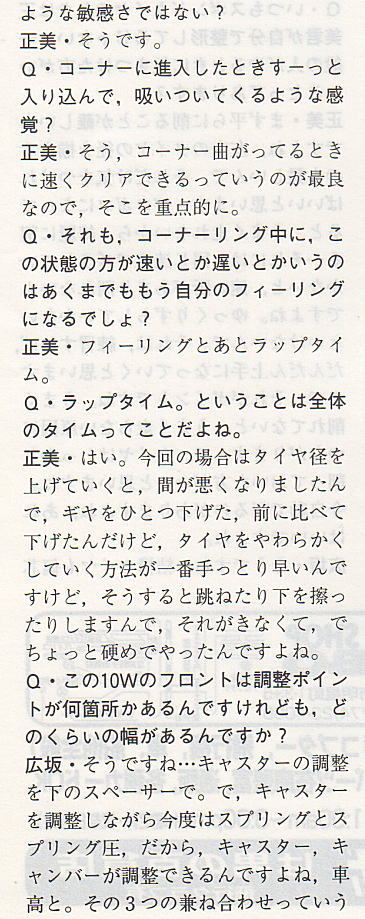 ような敏感さではない？
正美・そうです。
Q・コーナーに進入したときすーっと
入り込んで，吸いついてくるような感
覚？
正美・そう，コーナー曲がってるとき
に速くクリアできるっていうのが最良
なので，そこを重点的に。
Q・それも，コーナーリング中に，こ
の状態の方が速いとか遅いとかいうの
はあくまでももう自分のフィーリング
になるでしょ？
正美・フィーリングとあとラップタイ
ム。
Q・ラップタイム。ということは全体
のタイムってことだよね。
正美・はい。今回の場合はタイヤ径を
上げていくと，間が悪くなりましたん
で，ギヤをひとつ下げた，前に比べて
下げたんだけど，タイヤをやわらかく
していく方法が一番手っとり早いんで
すけど，そうすると跳ねたり下を擦っ
たりしますんで，それがきなくて，で
ちょっと硬めでやったんですよね。
Q・この10Wのフロントは調整ポイン
トが何箇所かあるんですけれども，ど
のくらいの幅があるんですか？
広坂・そうですね…キャスターの調整
を下のスペーサーで。で，キャスター
を調整しながら今度はスプリングとス
プリング圧，だから，キャスター，キ
ャンバーが調整できるんですよね，車
高と。その３つの兼ね合わせっていう